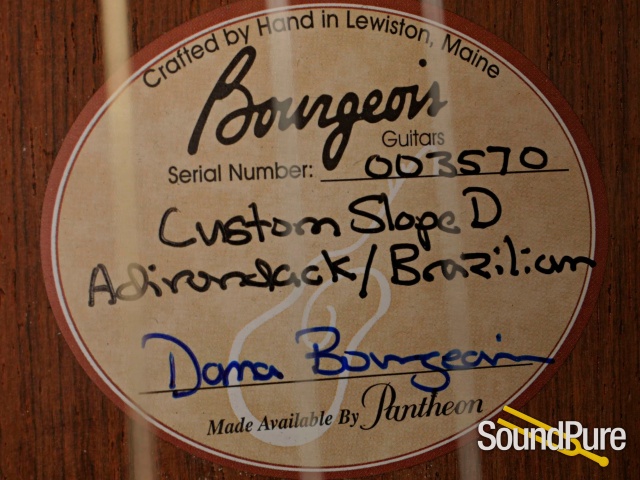 Crafted by Hand in Lewiston, Maine
Bourgeois
Guitars
Serial Number: 003570
Custom Slope D
Adirondack/Brazilian
Dana Bourgeois
Made Available By Pantheon
SoundPure